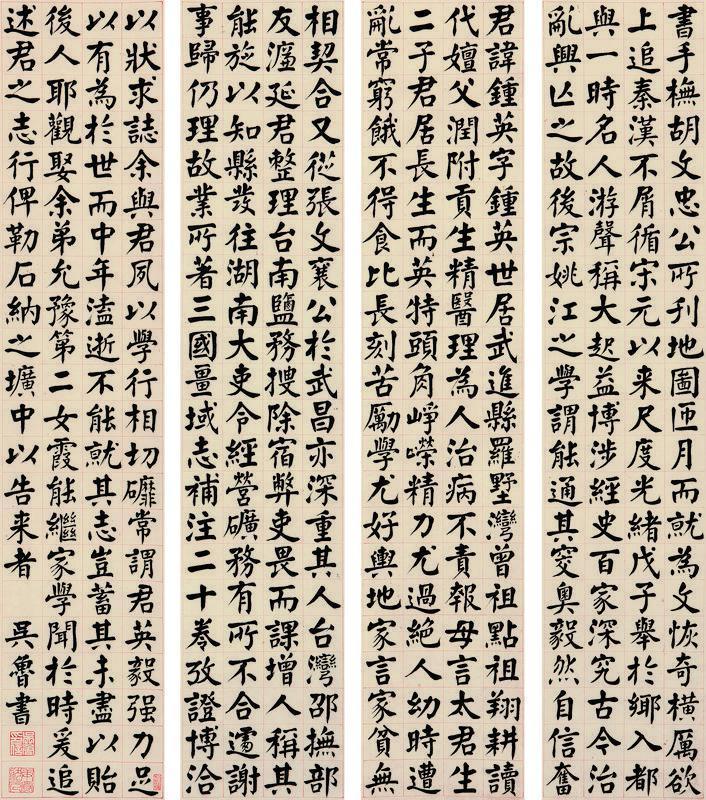 書手橅胡文忠公所刊地圖匝月而就為文恢奇橫厲欲
上追秦漢不屑循宋元以来尺度光緒戊子舉於鄉入都
與一時名人游聲稱大起益博涉經史百家深究古今治
亂興亾之故後宗姚江之學謂能通其窔奧毅然自信奮
君諱鍾英字鍾英世居武進縣羅墅灣曾祖點祖翔耕讀
代嬗父潤附貢生精醫理為人治病不責報母言太君生
二子君居長生而英特頭角崢嶸精力尤過絕人幼時遭
亂常窮餓不得食比長刻苦勵學尤好輿地家言家貧無
相契合又從張文襄公於武昌亦深重其人台灣邵撫部
友濂延君整理台南鹽務搜除宿弊吏畏而課增人稱其
能旋以知縣發往湖南大吏令經營礦務有所不合遽謝
事歸仍理故業所著三國畺域志補注二十卷攷證博洽
以狀求誌余與君夙以學行相切礳常謂君英毅强力足
以有為於世而中年溘逝不能就其志豈蓄其未盡以貽
後人耶觀娶余弟允豫第二女霞能繼家學聞於時爰追
述君之志行俾勒石納之壙中以告来者 吳魯書